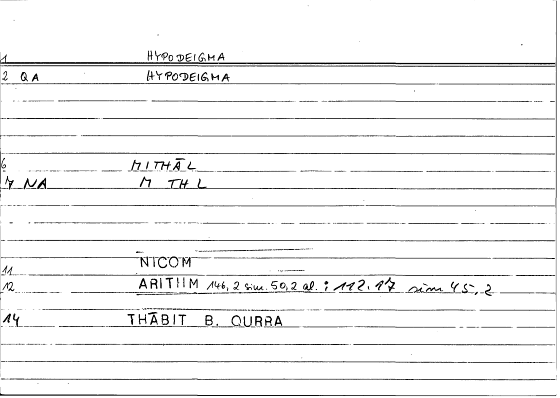 1 HYPODEIGMA
2 QA HYPODEIGMA
6 MITHĀL
7 NA M TH L
11 NICOM
12 ARITIIM 146,2 sim. 50,2 al. : 112.17 sim 45,2
14 THĀBIT B. QURRA